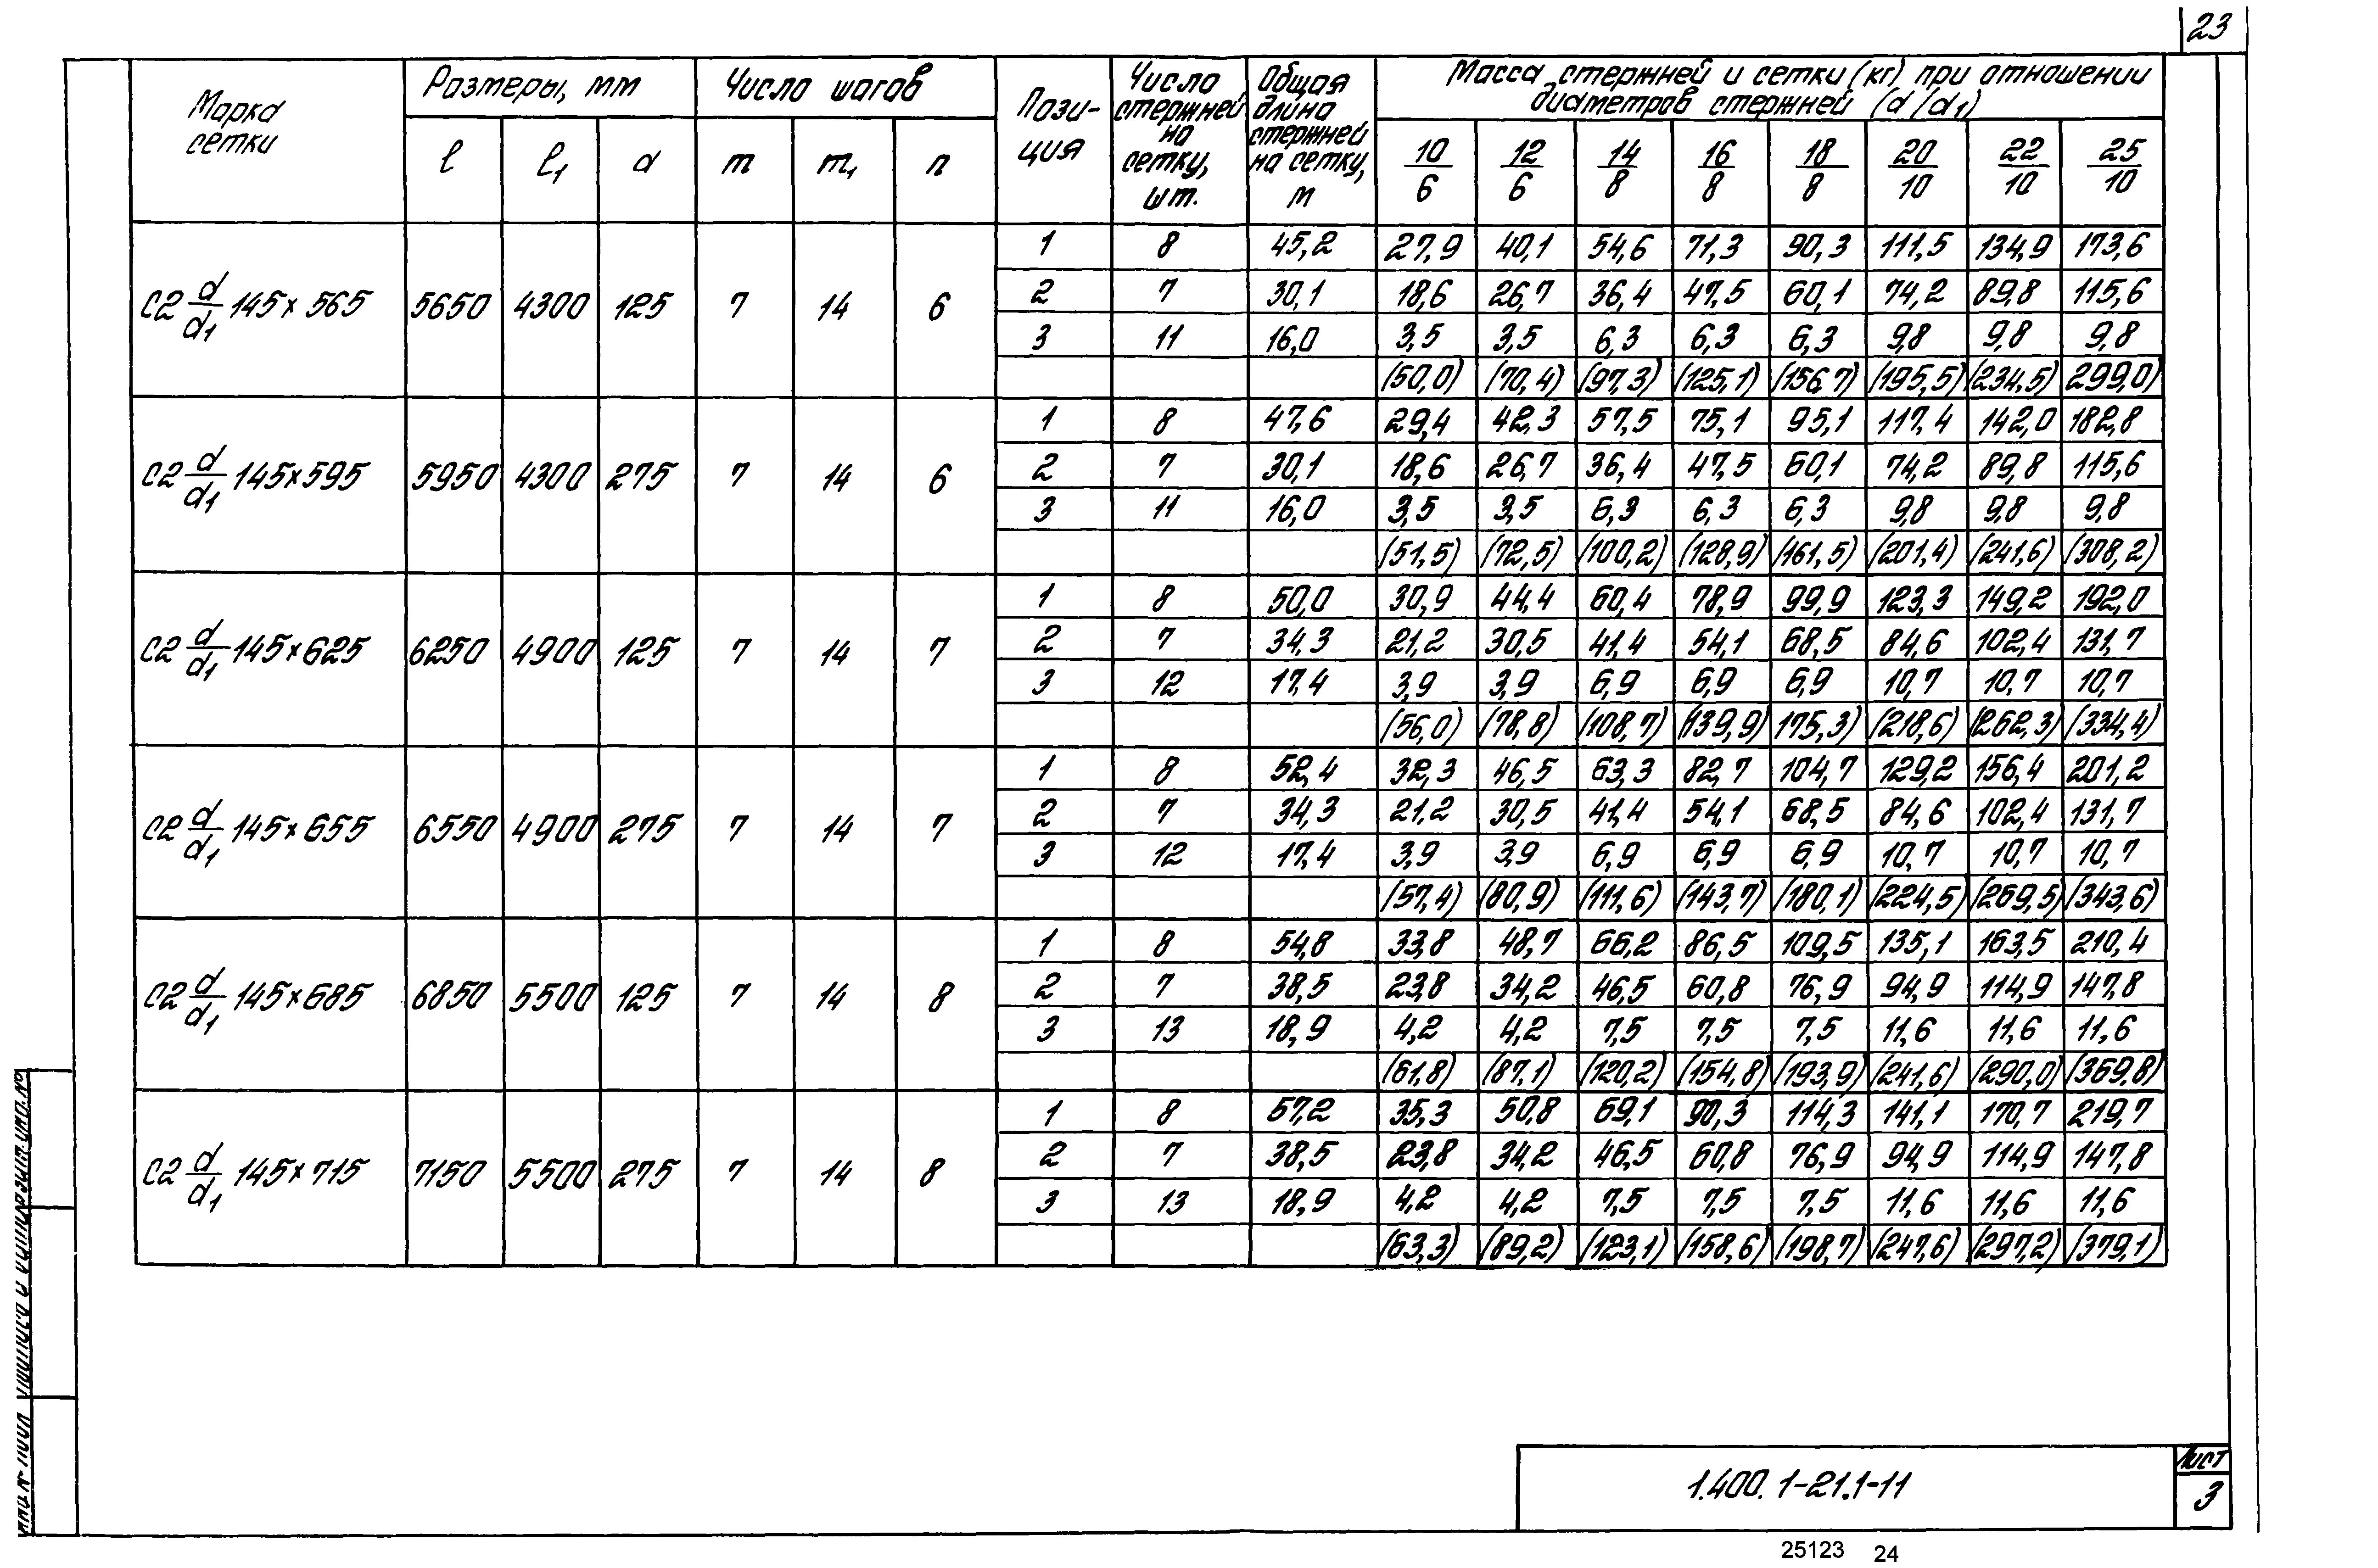 23
Марка сетки | Размеры, мм | Число шагов | Пози-ция | Число стержней на сетку, шт. | Общая длина стержней на сетку, м | Масса стержней и сетки (кг) при отношении диаметров стержней (d/d1)
l | l1 | a | m | m1 | n | 10/6 | 12/6 | 14/8 | 16/8 | 18/8 | 20/10 | 22/10 | 25/10
1 | 8 | 45,2 | 27,9 | 40,1 | 54,6 | 71,3 | 90,3 | 111,5 | 134,9 | 173,6
С2 d/d1 145×565 | 5650 | 4300 | 125 | 7 | 14 | 6 | 2 | 7 | 30,1 | 18,6 | 26,7 | 36,4 | 47,5 | 60,1 | 74,2 | 89,8 | 115,6
3 | 11 | 16,0 | 3,5 | 3,5 | 6,3 | 6,3 | 6,3 | 9,8 | 9,8 | 9,8
(50,0) | (70,4) | (97,3) | (125,1) | (156,7) | (195,5) | (234,5) | 299,0)
1 | 8 | 47,6 | 29,4 | 42,3 | 57,5 | 75,1 | 95,1 | 117,4 | 142,0 | 182,8
С2 d/d1 145×595 | 5950 | 4300 | 275 | 7 | 14 | 6 | 2 | 7 | 30,1 | 18,6 | 26,7 | 36,4 | 47,5 | 60,1 | 74,2 | 89,8 | 115,6
3 | 11 | 16,0 | 3,5 | 3,5 | 6,3 | 6,3 | 6,3 | 9,8 | 9,8 | 9,8
(51,5) | (72,5) | (100,2) | (128,9) | (161,5) | (201,4) | (241,6) | (308,2)
1 | 8 | 50,0 | 30,9 | 44,4 | 60,4 | 78,9 | 99,9 | 123,3 | 149,2 | 192,0
С2 d/d1 145×625 | 6250 | 4900 | 125 | 7 | 14 | 7 | 2 | 7 | 34,3 | 21,2 | 30,5 | 41,4 | 54,1 | 68,5 | 84,6 | 102,4 | 131,7
3 | 12 | 17,4 | 3,9 | 3,9 | 6,9 | 6,9 | 6,9 | 10,7 | 10,7 | 10,7
(56,0) | (78,8) | (108,7) | (139,9) | 175,3) | (218,6) | (262,3) | (334,4)
1 | 8 | 52,4 | 32,3 | 46,5 | 63,3 | 82,7 | 104,7 | 129,2 | 156,4 | 201,2
С2 d/d1 145×655 | 6550 | 4900 | 275 | 7 | 14 | 7 | 2 | 7 | 34,3 | 21,2 | 30,5 | 41,4 | 54,1 | 68,5 | 84,6 | 102,4 | 131,7
3 | 12 | 17,4 | 3,9 | 3,9 | 6,9 | 6,9 | 6,9 | 10,7 | 10,7 | 10,7
(57,4) | (80,9) | (111,6) | (143,7) | (180,1) | (224,5) | (269,5) | (343,6)
1 | 8 | 54,8 | 33,8 | 48,7 | 66,2 | 86,5 | 109,5 | 135,1 | 163,5 | 210,4
С2 d/d1 145×685 | 6850 | 5500 | 125 | 7 | 14 | 8 | 2 | 7 | 38,5 | 23,8 | 34,2 | 46,5 | 60,8 | 76,9 | 94,9 | 114,9 | 147,8
3 | 13 | 18,9 | 4,2 | 4,2 | 7,5 | 7,5 | 7,5 | 11,6 | 11,6 | 11,6
(61,8) | (87,1) | (120,2) | (154,8) | (193,9) | (241,6) | (290,0) | (369,8)
1 | 8 | 57,2 | 35,3 | 50,8 | 69,1 | 90,3 | 114,3 | 141,1 | 170,7 | 219,7
С2 d/d1 145×715 | 7150 | 5500 | 275 | 7 | 14 | 8 | 2 | 7 | 38,5 | 23,8 | 34,2 | 46,5 | 60,8 | 76,9 | 94,9 | 114,9 | 147,8
3 | 13 | 18,9 | 4,2 | 4,2 | 7,5 | 7,5 | 7,5 | 11,6 | 11,6 | 11,6
(63,3) | (89,2) | (123,1) | (158,6) | (198,7) | (247,6) | (297,2) | (379,1)
1.400.1-21.1-11
Лист
3
25123 24